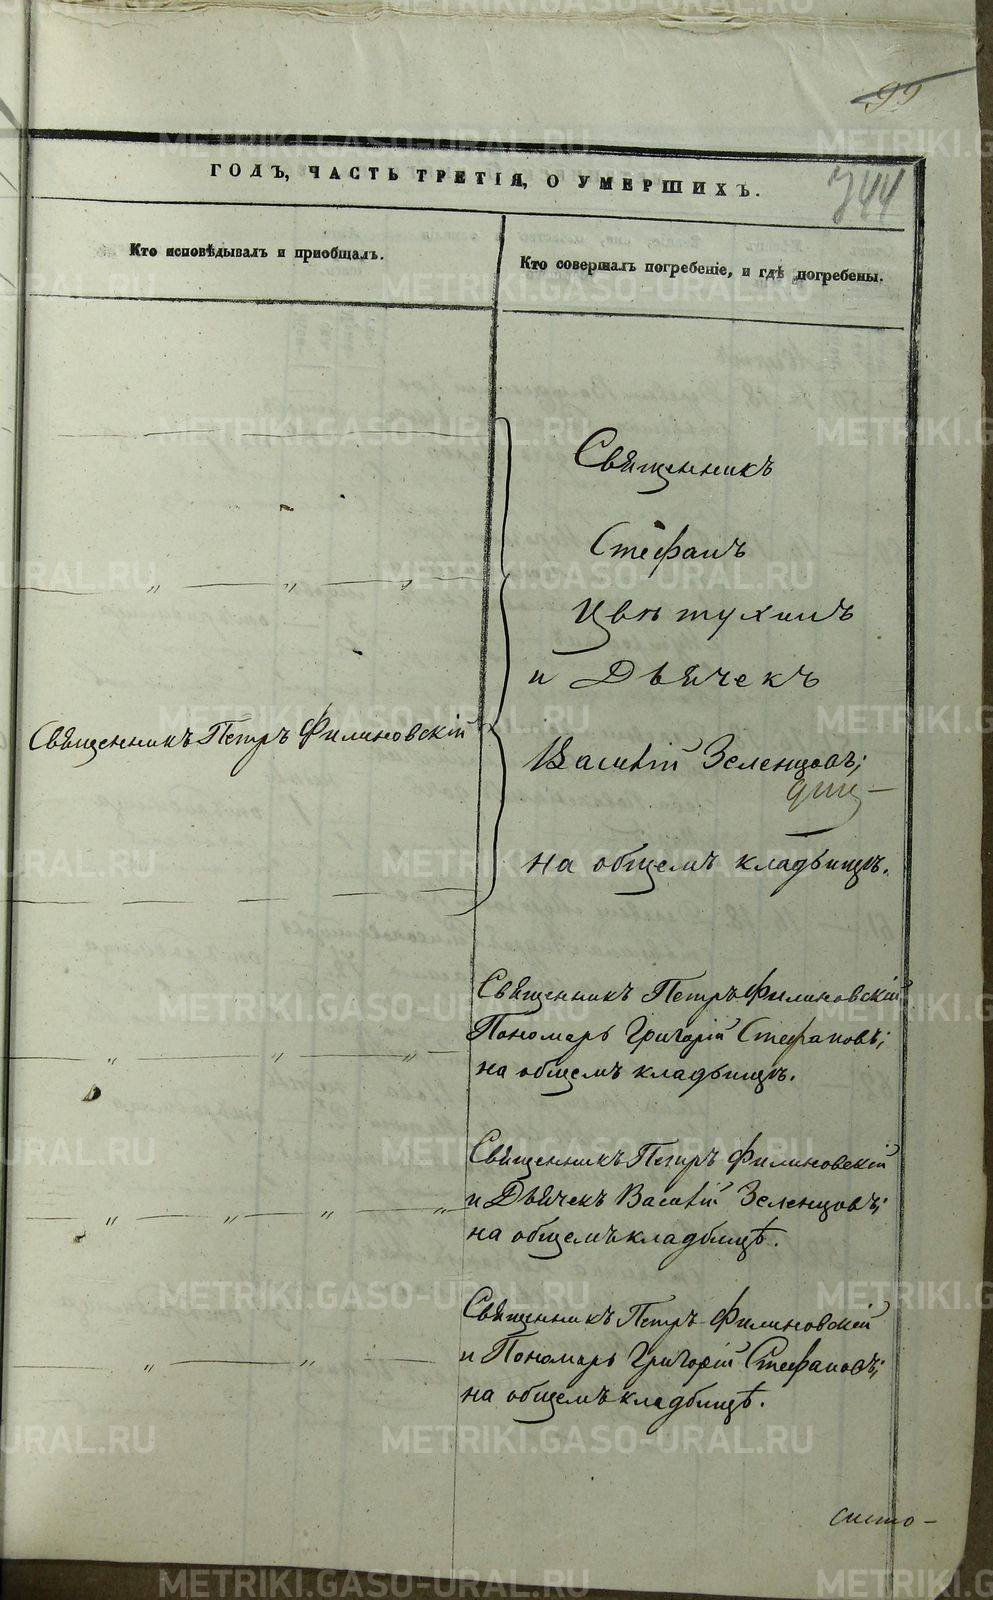 99
ГОДЪ, ЧАСТЬ ТРЕТІЯ, О УМЕРШИХЪ.
344
Кто исповѣдывалъ и пріобщалъ.
Кто совершалъ погребеніе, и гдѣ погребены.
Священникъ
Стефанъ
Цвѣтухинъ
и Дьячекъ
Священникъ Петръ Филиновскій
Василій Зеленцовъ;
на общемъ кладбищѣ.
Священникъ Петръ Филиновскій
Пономарь Григорій Стефановъ;
на общемъ кладбищѣ.
Священникъ Петръ Филиновскій
и Дьячекъ Василій Зеленцовъ;
на общемъ кладбищѣ.
Священникъ Петръ Филиновскій
и Пономарь Григорій Стефановъ;
на общемъ кладбищѣ.
METRIKI.GASO-URAL.RU